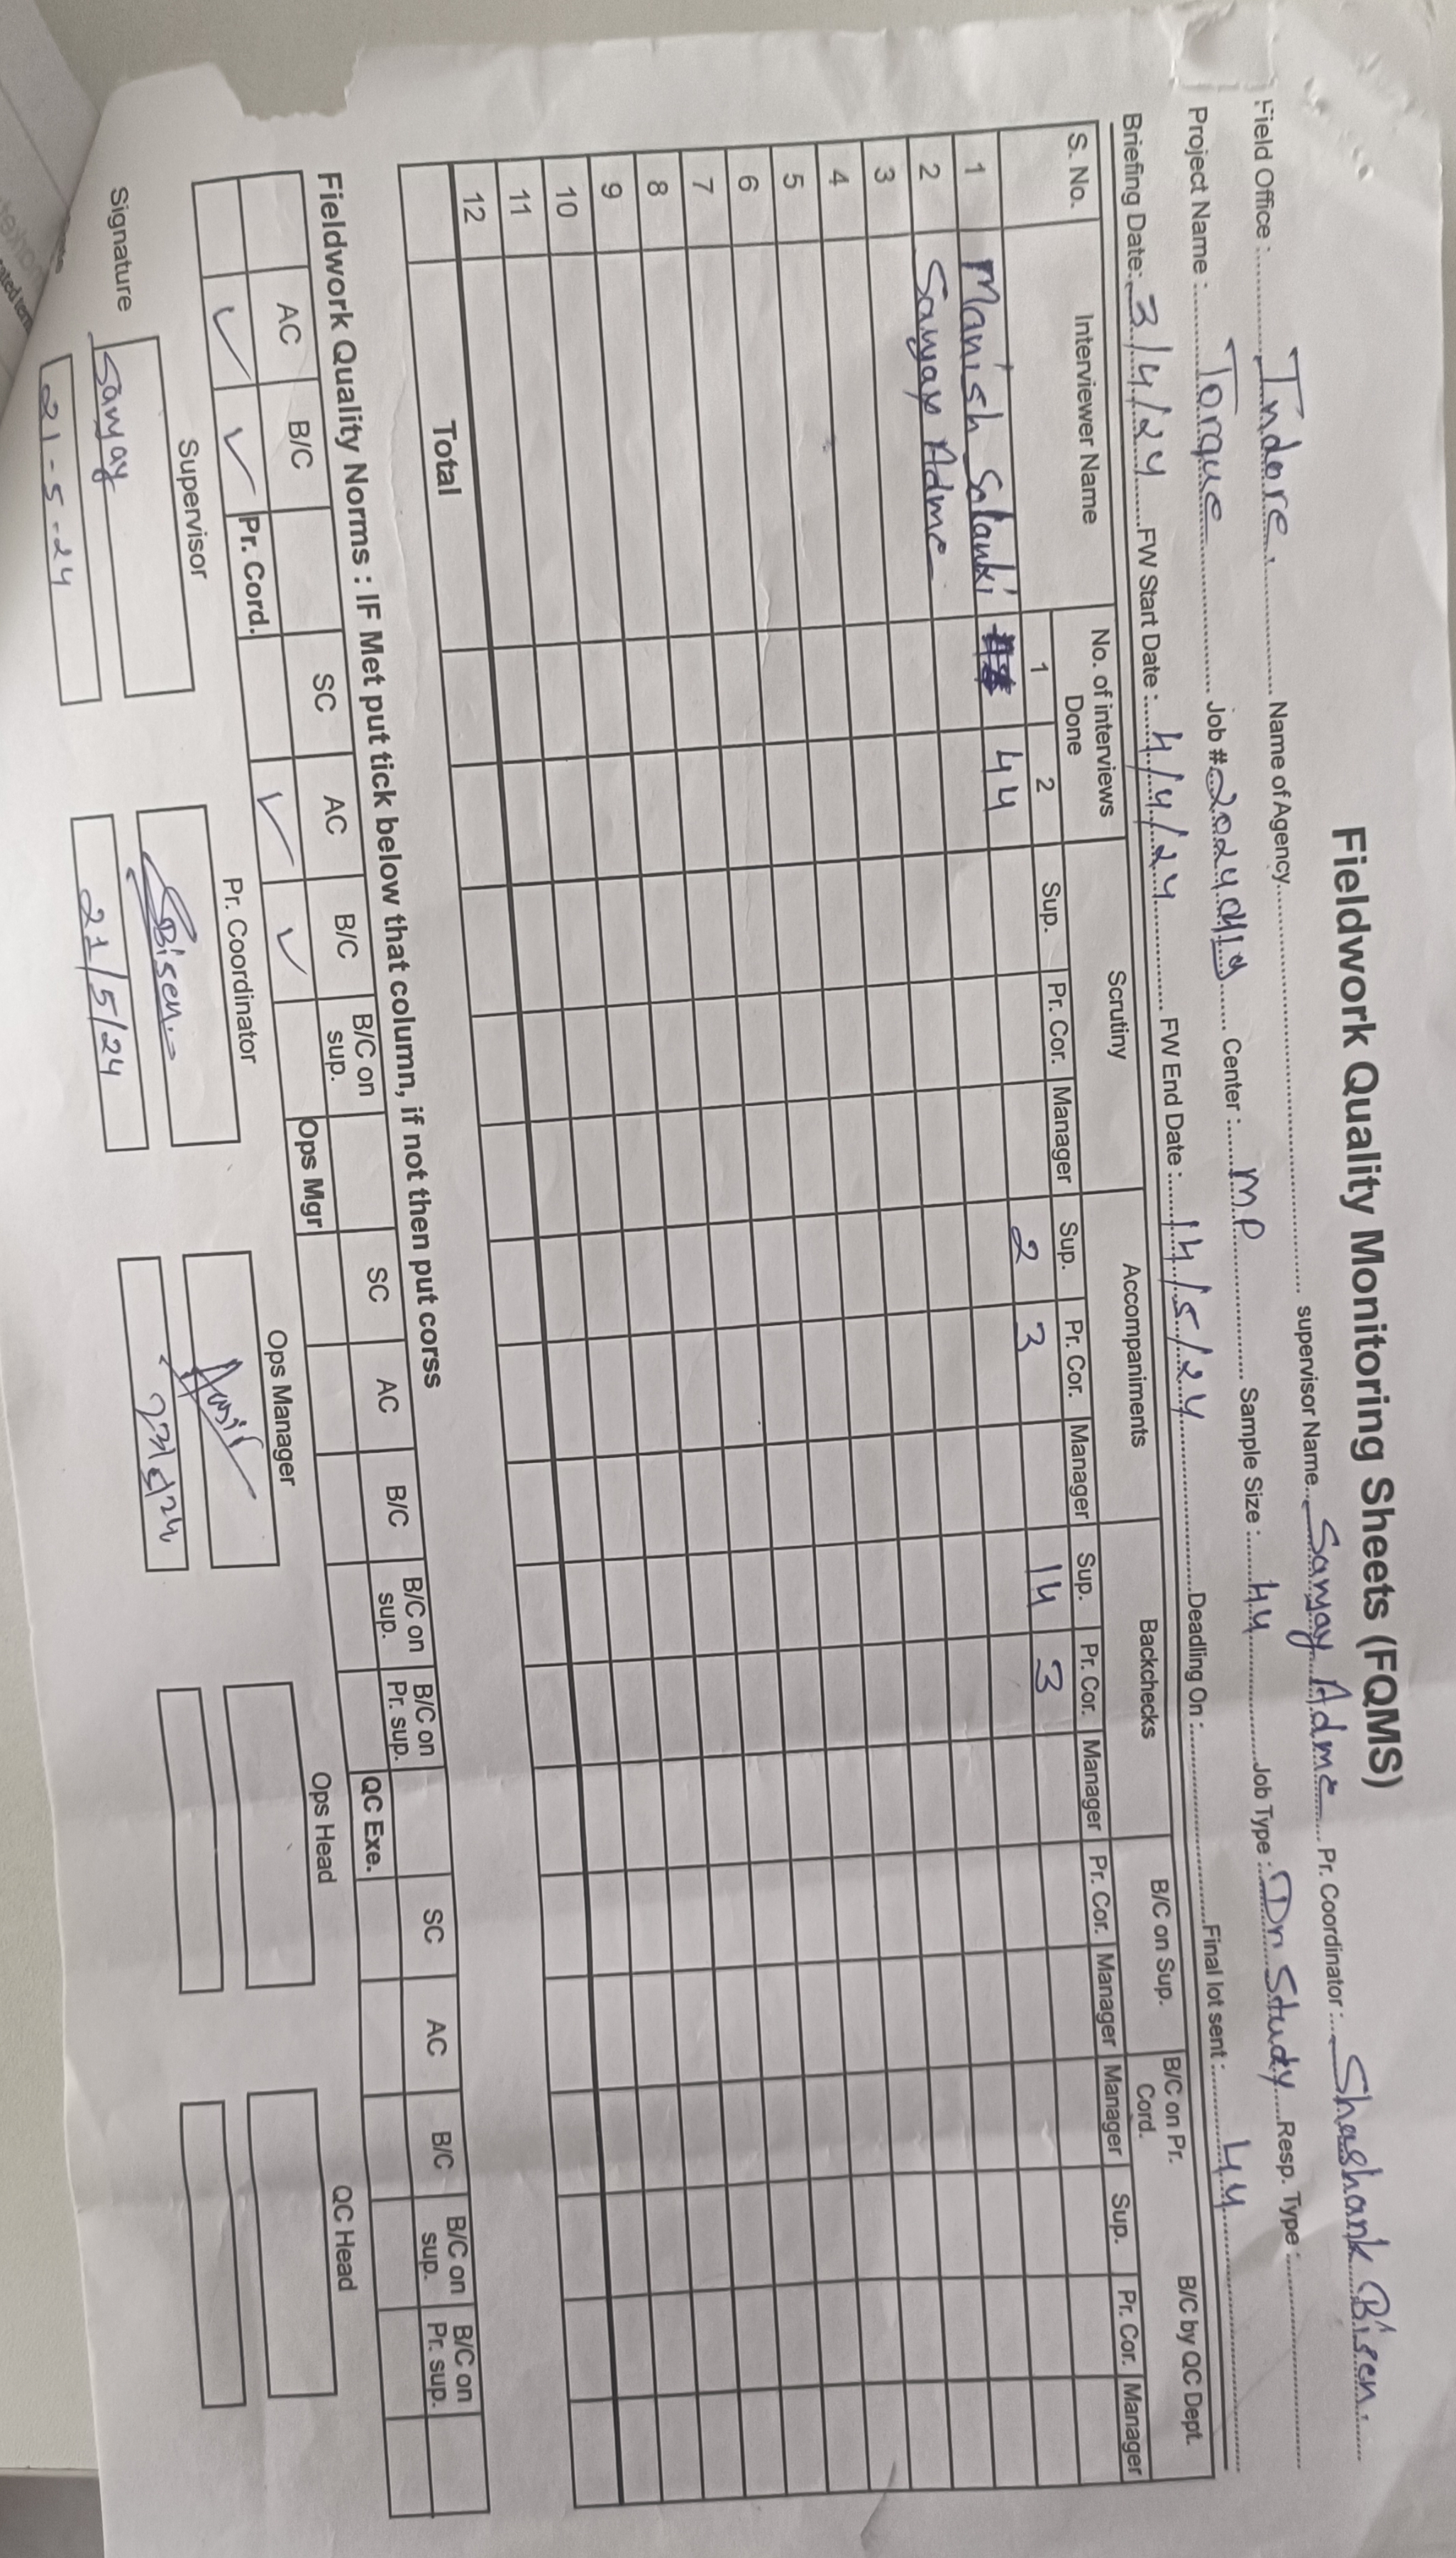 Fieldwork Quality Monitoring Sheets (FQMS)
Field Office : Indore. Name of Agency supervisor Name Sanjay Adme Pr. Coordinator : Shashank Bisen.
Project Name : Torque Job # Center : MP Sample Size : 44 Job Type : Dr Study Resp. Type :
Briefing Date: 3/4/24 FW Start Date : 4/4/24 FW End Date : 14/5/24 Deadling On : Final lot sent : 44
S. No. Interviewer Name No. of interviews Done Scrutiny Accompaniments Backchecks B/C on Sup. B/C on Pr. Cord. B/C by QC Dept.
1 2 Sup. Pr. Cor. Manager Sup. Pr. Cor. Manager Sup. Pr. Cor. Manager Pr. Cor. Manager Manager Sup. Pr. Cor. Manager
1 Manish Solanki 44 2 3 14 3
2 Sanjay Adme
3
4
5
6
7
8
9
10
11
12
Total
Fieldwork Quality Norms : IF Met put tick below that column, if not then put corss
AC B/C SC AC B/C B/C on sup. SC AC B/C B/C on sup. B/C on Pr. sup. SC AC B/C B/C on sup. B/C on Pr. sup.
✓ ✓ Pr. Cord. ✓ ✓ Ops Mgr QC Exe.
Supervisor Pr. Coordinator Ops Manager Ops Head QC Head
Signature Sanjay Bisen
21-5-24 21/5/24